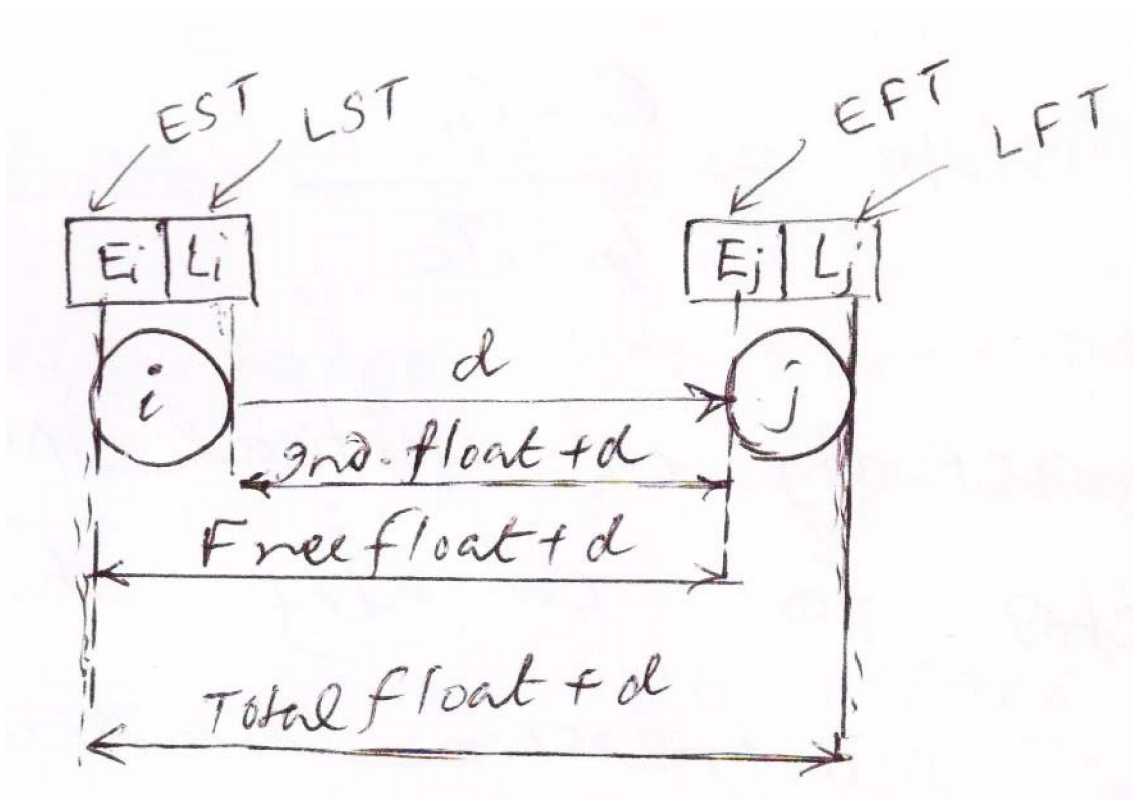 EST LST EFT LFT
Ei Li Ej Lj
i d j
Ind. float + d
Free float + d
Total float + d